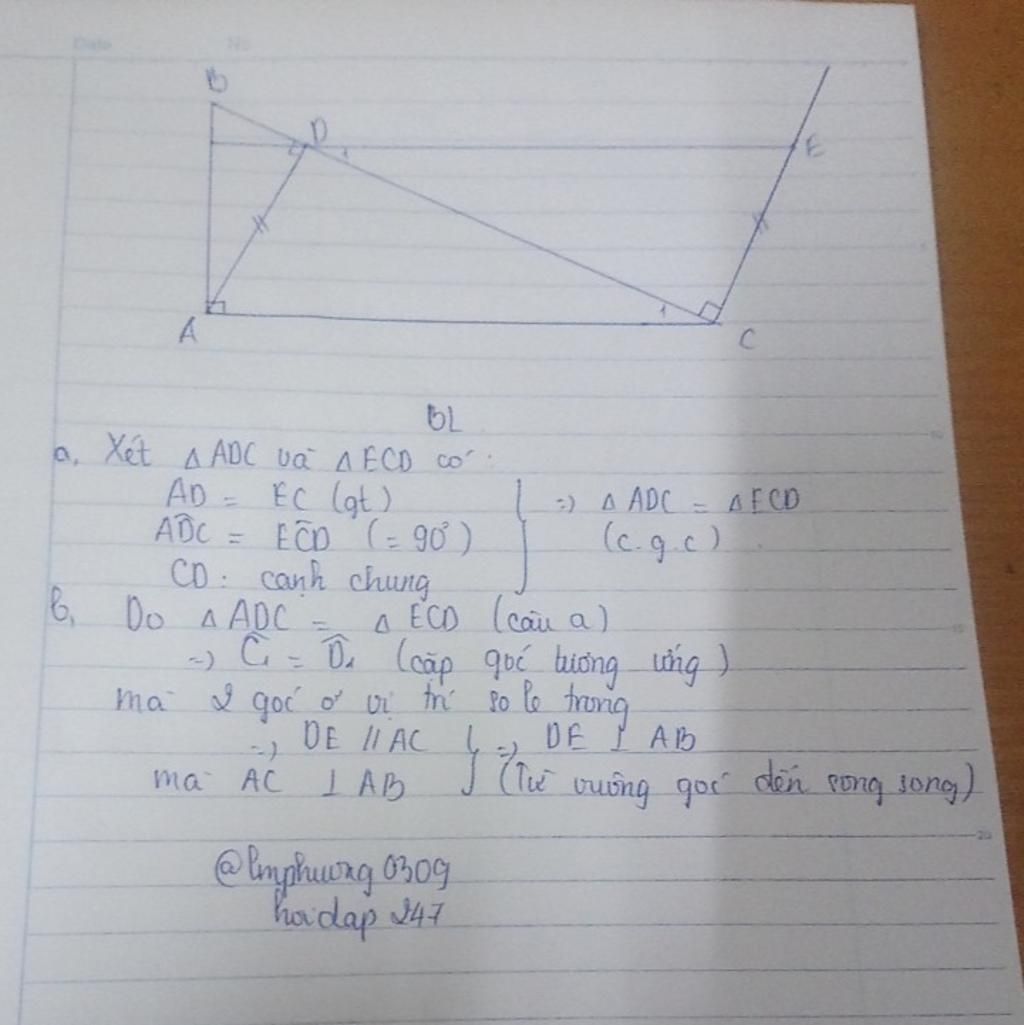 Date No
B
D
1
E
A
1
C
BL
a, Xét △ ADC và △ ECD có :
AD = EC (gt)
ADC = ECD (= 90°)
CD : cạnh chung
=) △ ADC = △ ECD
(c.g.c)
b, Do △ ADC = △ ECD (câu a)
=) Ĉ₁ = D̂₁ (cặp góc tương ứng)
mà 2 góc ở vị trí so le trong
=) DE // AC
mà AC ⊥ AB
=) DE ⊥ AB
(Từ vuông góc đến song song)
@lmphuong0309
hoidap 247